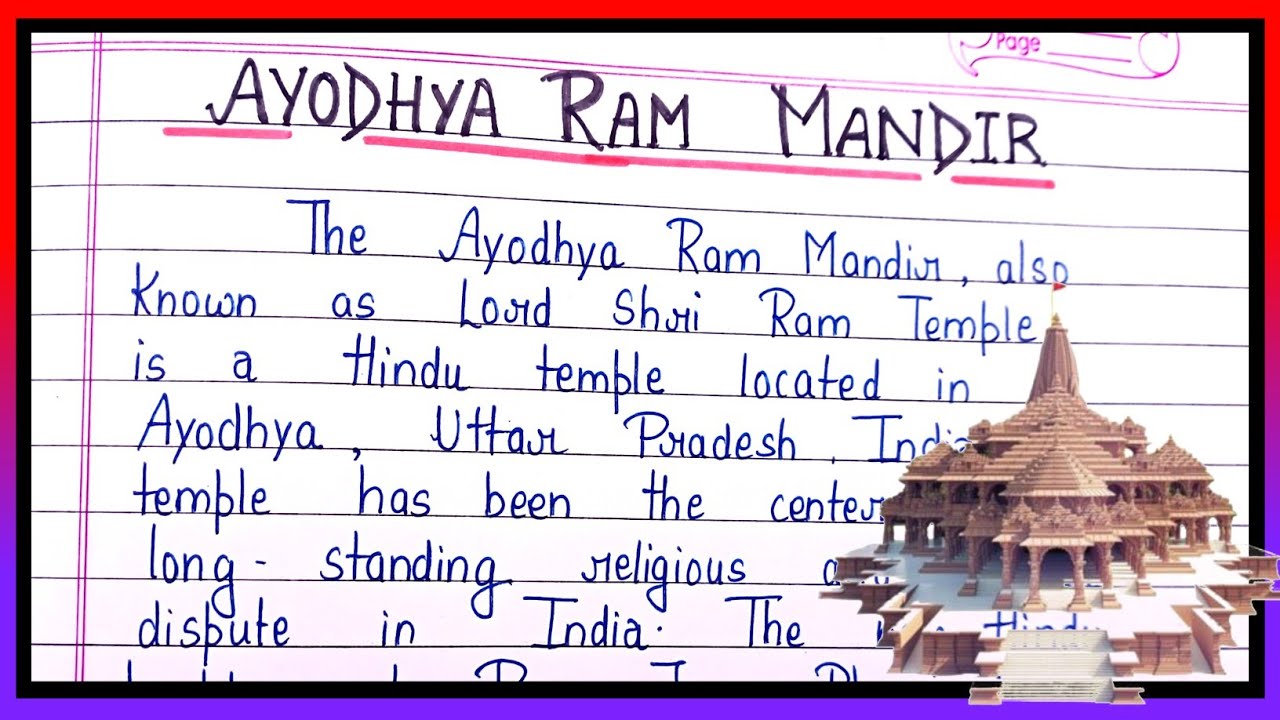 Page
AYODHYA RAM MANDIR
The Ayodhya Ram Mandir, also
Known as Lord Shri Ram Temple
is a Hindu temple located in
Ayodhya, Uttar Pradesh, India
temple has been the center
long-standing religious
dispute in India. The Hindu